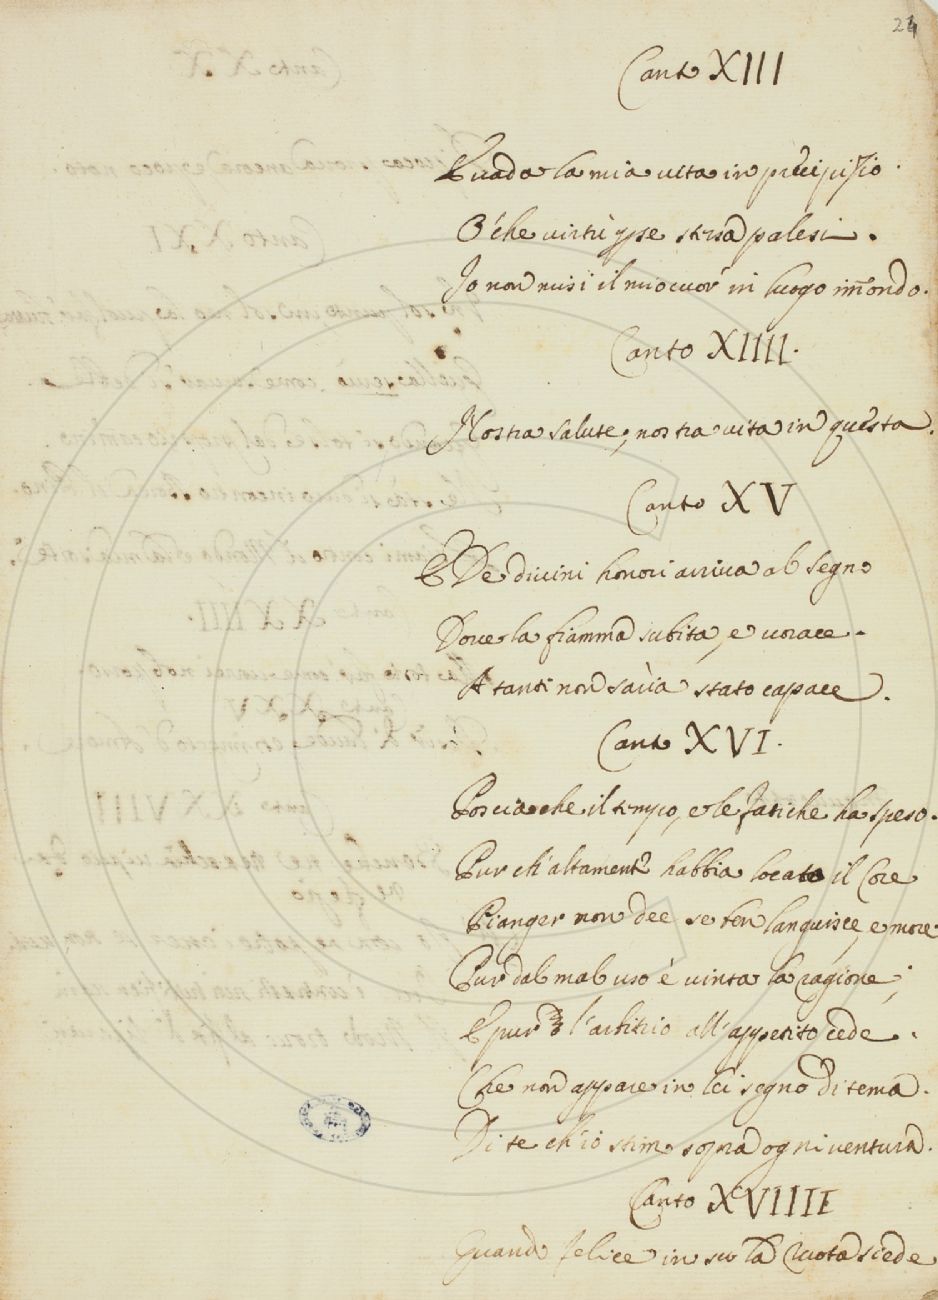 24
Canto XIII
E vada la mia vita in precipitio.
O' che virtù spesse stesa palesi.
Io non misi il mio cuor' in luogo im̃ondo.
Canto XIIII.
Nostra salute, nostra vita in questa.
Canto XV
E De divini honori arriva al segno
Dove la fiamma subita, e vorace.
A tanti non saria stato capace.
Canto XVI.
Poscia che il tempo, e le fatiche ha speso.
Pur ch'altamente habbia locato il Core
Pianger non dee se ben languisce, e more
Pur dal mal uso è vinta la ragione;
E pur l'arbitrio all'appetito cede.
Che non appare in lei segno di tema.
Di te ch'io stimo sopra ogni ventura.
Canto XVIIII
Quando felice in su la Ruota siede